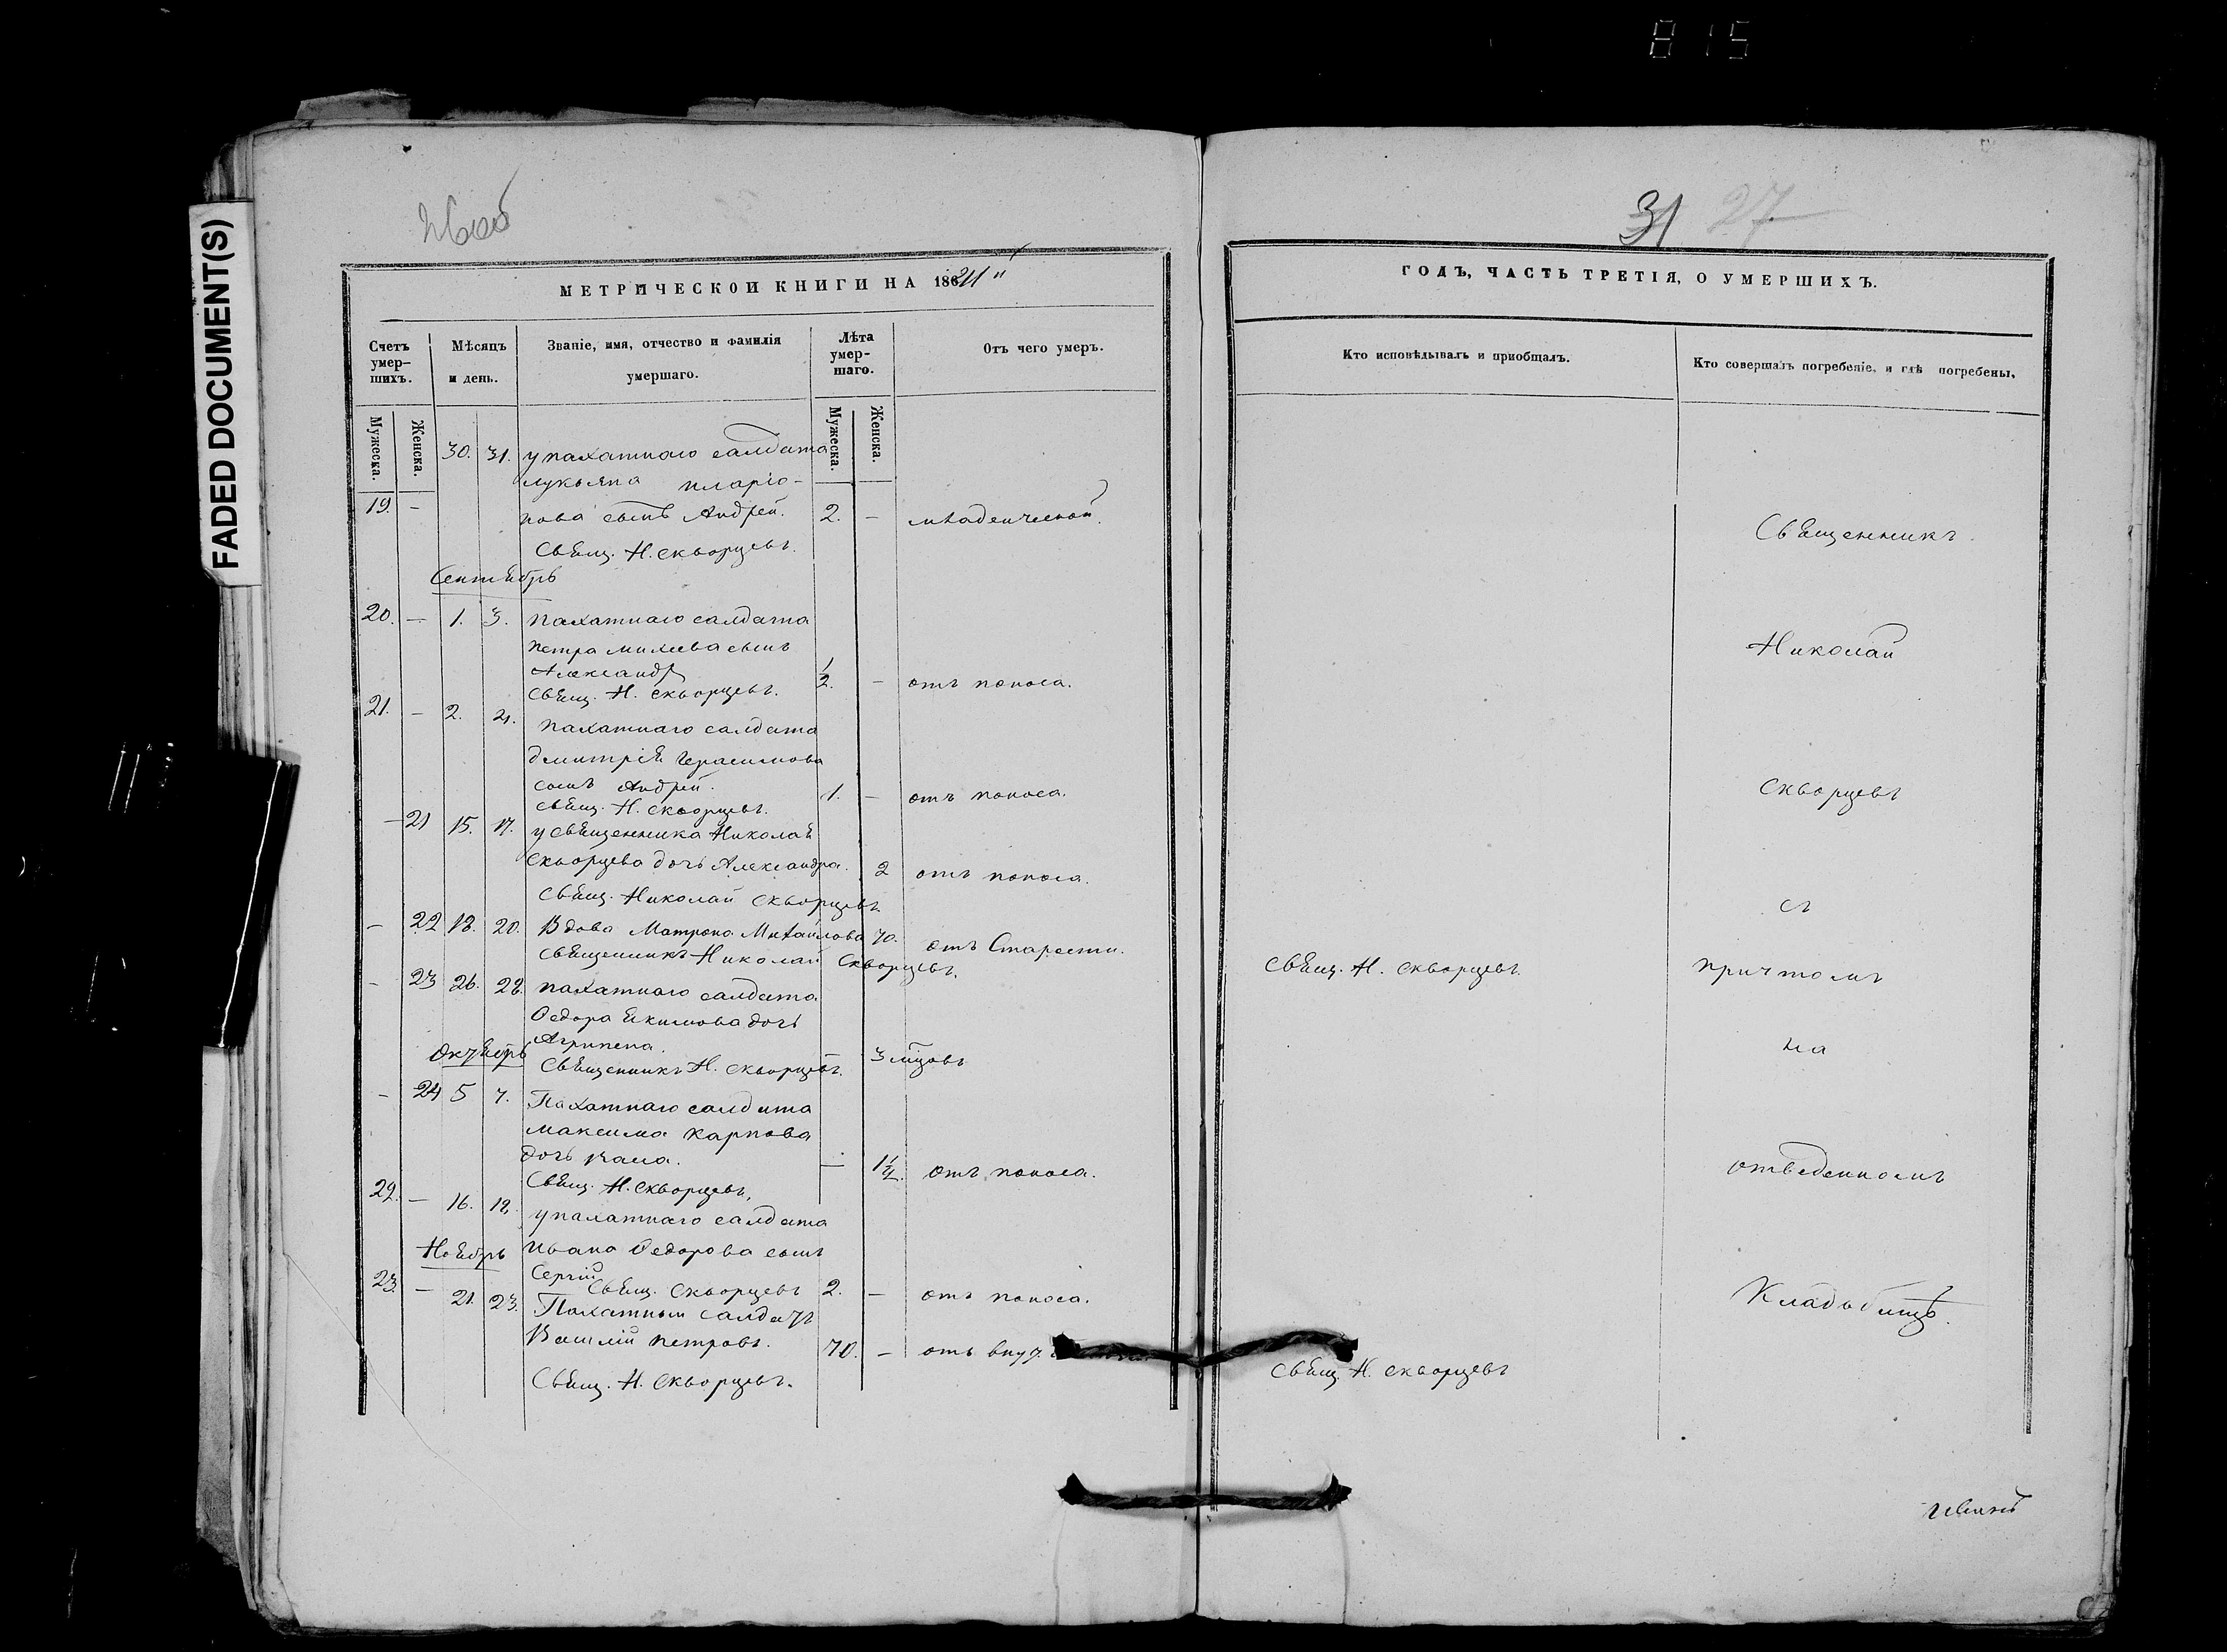 815
FADED DOCUMENT(S)
МЕТРИЧЕСКОЙ КНИГИ НА 1864"
Счетъ умер-шихъ.
Мѣсяцъ и день.
Званіе, имя, отчество и фамилія умершаго.
Лѣта умер-шаго.
Отъ чего умеръ.
Мужеска.
Женска.
Мужеска.
Женска.
30. 31. у пахатнаго салдата
лукьяна иларіо-
19. - нова сынъ Андрей. 2. - младенческой.
свящ. Н. скворцевъ.
Сентябрь
20. - 1. 3. пахатнаго салдата
петра михеева сынъ
Александр
свящ. Н. скворцевъ. 1/2. - отъ поноса.
21. - 2. 4. пахатнаго салдата
дмитрія герасимова
сынъ Андрей. 1. - отъ поноса.
свящ. Н. скворцевъ.
- 21 15. 17. у священника Николая
скворцева дочь Александра. 2 отъ поноса.
свящ. Николай скворцевъ.
- 22 18. 20. Вдова Матрона Михайлова 70. отъ Старости.
священникъ Николай Скворцевъ.
- 23 26. 28. пахатнаго салдата
Ѳедора Якимова дочь
Агрипена.
Октябрь
священникъ Н. скворцевъ. 3 мцовъ
- 24 5 7. Пахатнаго салдата
максима карпова
дочь - 1 1/2. отъ поноса.
Свящ. Н. Скворцевъ.
22. - 16. 18. у пахатнаго салдата
Ноябрь
ивана Ѳедорова сынъ
Сергій
свящ. Скворцевъ 2. - отъ поноса.
23. - 21. 23. Пахатный салдатъ
Василій петровъ. 70. - отъ
Свящ. Н. Скворцевъ.
31 27
ГОДЪ, ЧАСТЬ ТРЕТІЯ, О УМЕРШИХЪ.
Кто исповѣдывалъ и пріобщалъ.
Кто совершалъ погребеніе, и гдѣ погребены.
Священникъ
Николай
скворцевъ
съ
свящ. Н. скворцевъ.
причтомъ
на
отведенномъ
Кладбищѣ.
свящ. Н. скворцевъ